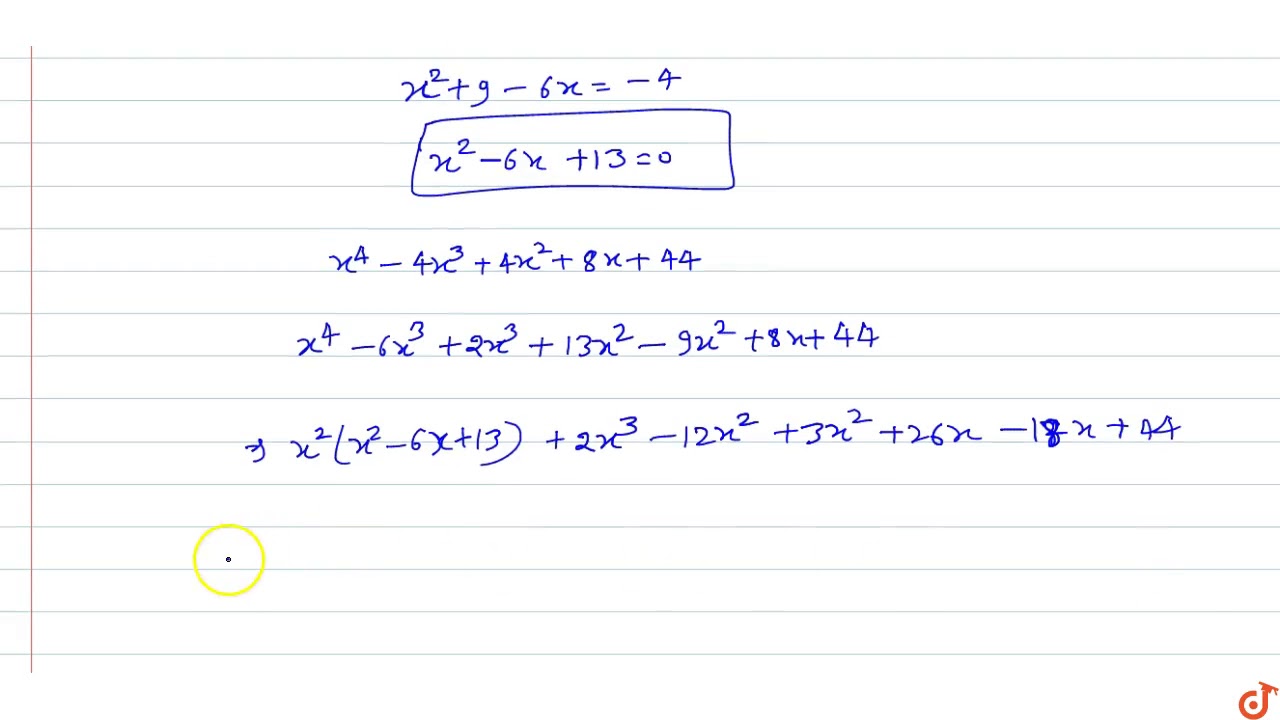 x² + 9 − 6x = −4
x² − 6x + 13 = 0
x⁴ − 4x³ + 4x² + 8x + 44
x⁴ − 6x³ + 2x³ + 13x² − 9x² + 8x + 44
⇒ x² (x² − 6x + 13) + 2x³ − 12x² + 3x² + 26x − 18x + 44